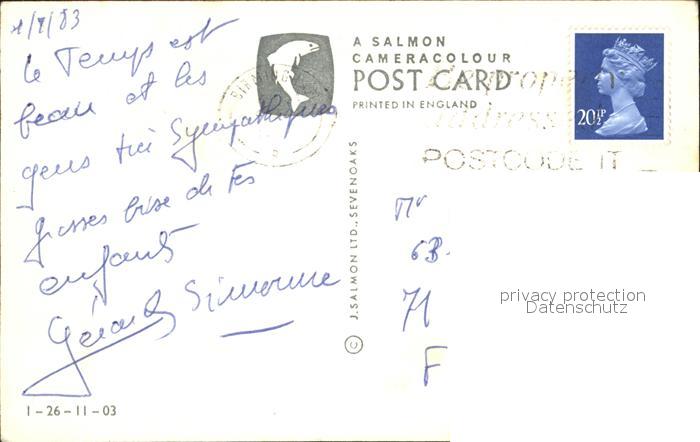 1/7/83
le Temps est
beau et les
gens très Sympathiques
grosses bise de Tes
enfants
Gérard Simonne
1-26-11-03
© J. SALMON LTD., SEVENOAKS
A SALMON
CAMERACOLOUR
POST CARD
PRINTED IN ENGLAND
BIRMING
20½P
properly
address
POSTCODE IT
Mr
6B.
71
F
privacy protection
Datenschutz